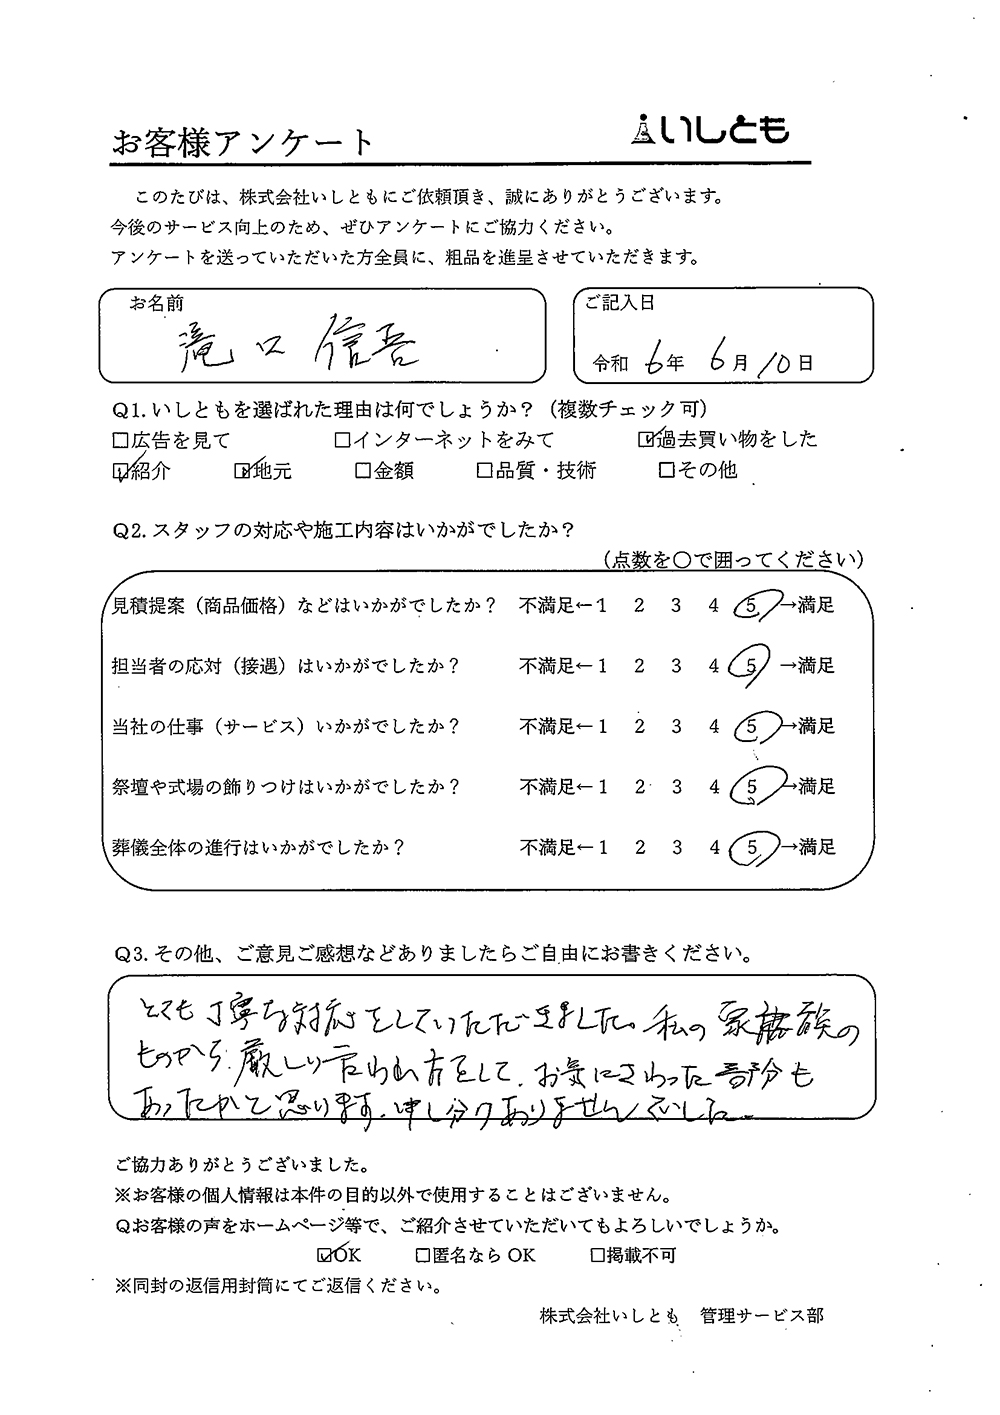 お客様アンケート
いしとも
このたびは、株式会社いしともにご依頼頂き、誠にありがとうございます。
今後のサービス向上のため、ぜひアンケートにご協力ください。
アンケートを送っていただいた方全員に、粗品を進呈させていただきます。
お名前
滝口 信吾
ご記入日
令和 6年 6月 10日
Q1.いしともを選ばれた理由は何でしょうか？（複数チェック可）
□広告を見て □インターネットをみて ☑過去買い物をした
☑紹介 ☑地元 □金額 □品質・技術 □その他
Q2.スタッフの対応や施工内容はいかがでしたか？
（点数を〇で囲ってください）
見積提案（商品価格）などはいかがでしたか？ 不満足←1 2 3 4 5→満足
担当者の応対（接遇）はいかがでしたか？ 不満足←1 2 3 4 5 →満足
当社の仕事（サービス）いかがでしたか？ 不満足←1 2 3 4 5→満足
祭壇や式場の飾りつけはいかがでしたか？ 不満足←1 2 3 4 5→満足
葬儀全体の進行はいかがでしたか？ 不満足←1 2 3 4 5→満足
Q3.その他、ご意見ご感想などありましたらご自由にお書きください。
とても丁寧な対応をしていただきました。私の家族の
ものから厳しい言われ方をして、お気にさわった部分も
あったかと思います。申し分ありませんでした。
ご協力ありがとうございました。
※お客様の個人情報は本件の目的以外で使用することはございません。
Qお客様の声をホームページ等で、ご紹介させていただいてもよろしいでしょうか。
☑OK □匿名なら OK □掲載不可
※同封の返信用封筒にてご返信ください。
株式会社いしとも 管理サービス部